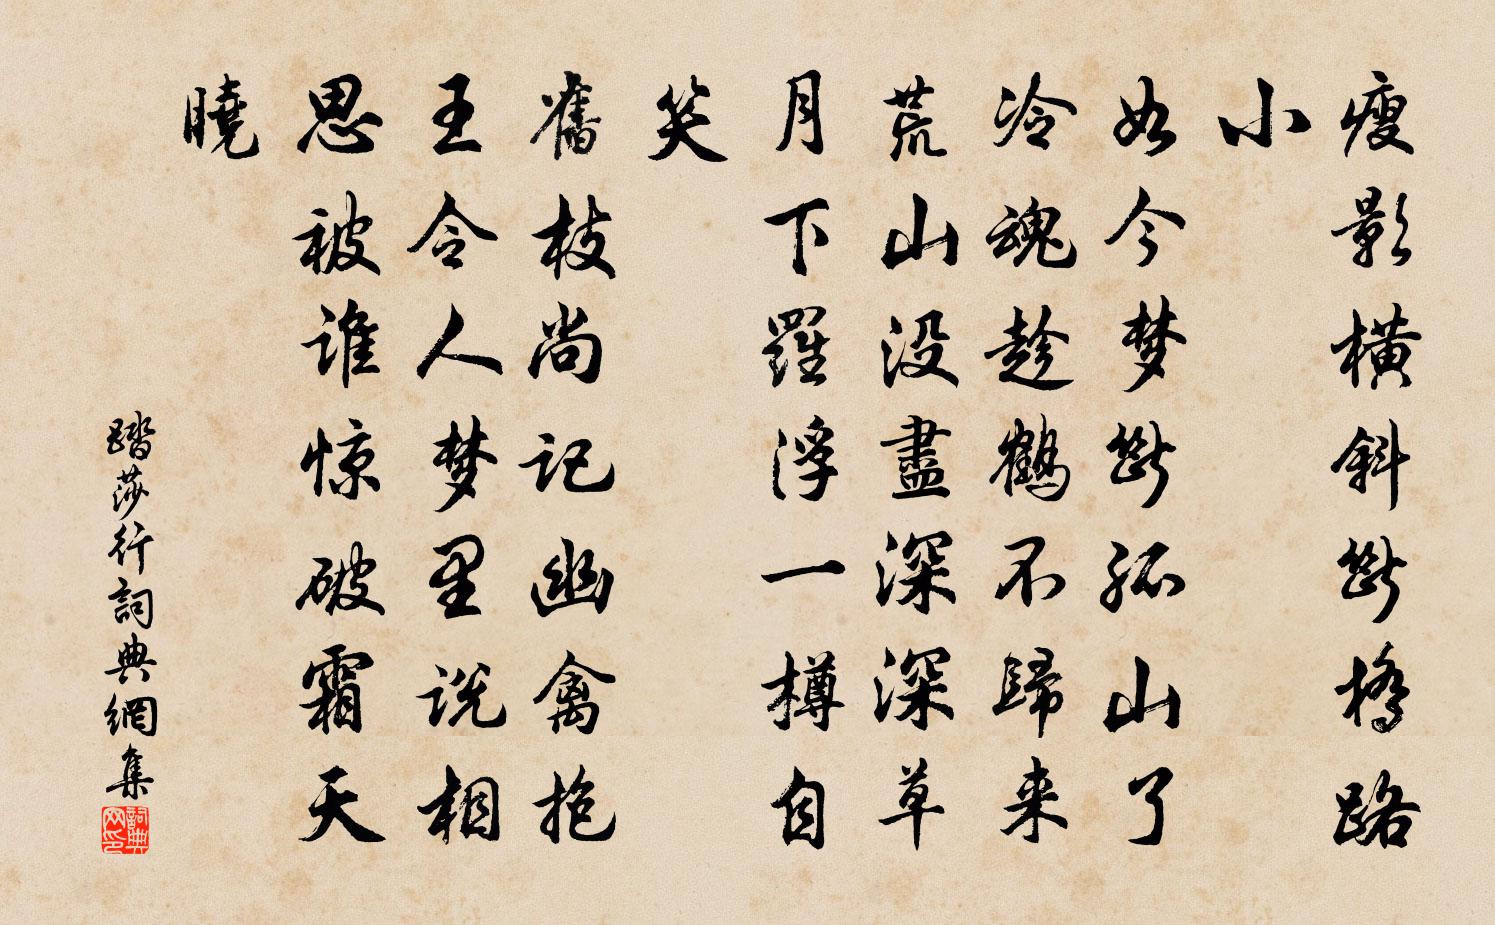 瘦影横斜断桥路
小
如今梦断孤山了
冷魂趁鶴不歸来
荒山没盡深深草
月下羅浮一樽自
笑
舊枝尚记幽禽抱
王令人梦里说相
思被谁惊破霜天
曉
踏莎行詞典網集
詞典网印